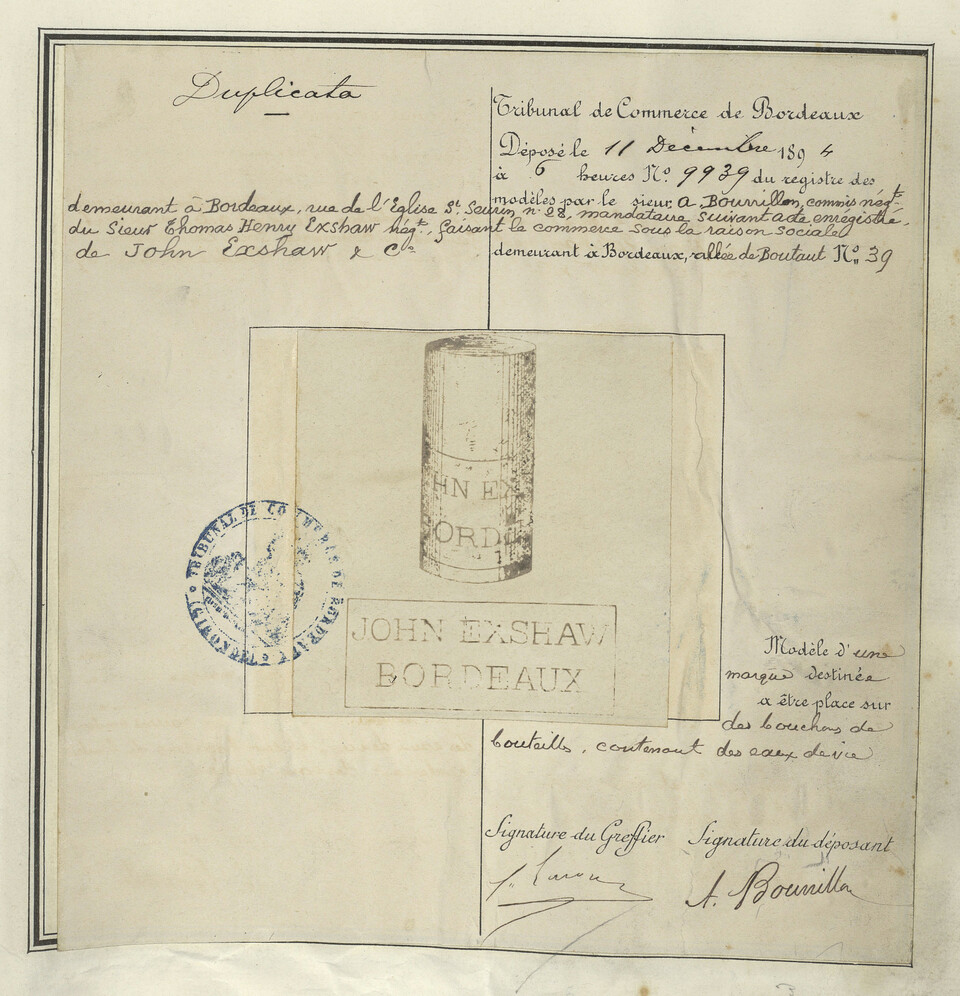 Duplicata
Tribunal de Commerce de Bordeaux
Déposé le 11 Décembre 1894
à 6 heures Nº 9939 du registre des
modèles par le sieur A. Bourrillon, commis négt.
demeurant à Bordeaux, rue de l'Eglise St. Seurin, nº 28, mandataire suivant acte enregistré,
du Sieur Thomas Henry Exshaw négt., faisant le commerce sous la raison sociale
de John Exshaw & Cie
demeurant à Bordeaux, allée de Boutaut Nº 39
HN EX
ORDE
TRIBUNAL DE COMMERCE DE BORDEAUX
JOHN EXSHAW
BORDEAUX
Modèle d'une
marque destinée
a être place sur
des bouchons de
bouteills, contenant des eaux de vie
Signature du Greffier
Signature du déposant
A. Bourrillon